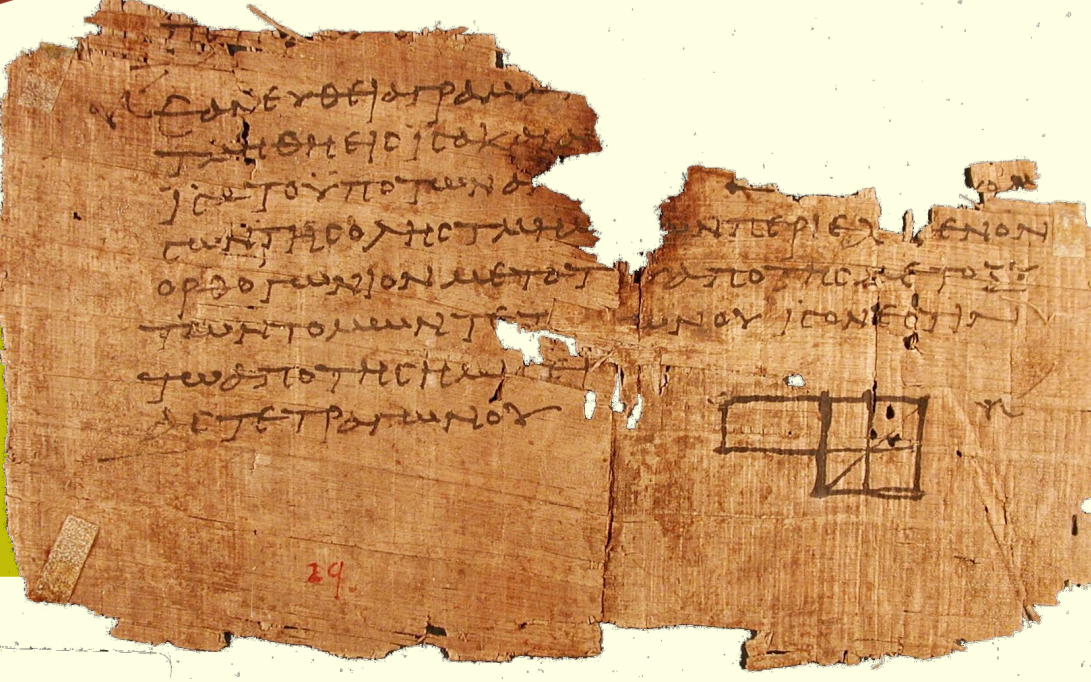 ΕΑΝ ΕΥΘΕΙΑ ΓΡΑΜΜ
ΤΜΗΘΗ ΕΙC ΙCΑ ΚΑΙ Α
ΙCΑ ΤΟ ΥΠΟ ΤΩΝ Α
CΩΝ ΤΗC ΟΛΗC ΤΜΗΜ ΩΝ ΠΕΡΙΕΧ ΜΕΝΟΝ
ΟΡΘΟΓΩΝΙΟΝ ΜΕΤΑ ΤΟΥ ΑΠΟ ΤΗC ΜΕΤΟΞΥ
ΤΩΝ ΤΟΜΩΝ ΤΕΤ ΩΝΟΥ ΙCΟΝ ΕCΤΙΝ
ΤΩ ΑΠΟ ΤΗC ΗΜΙ
ΑC ΤΕΤΡΑΓΩΝΟΥ
29